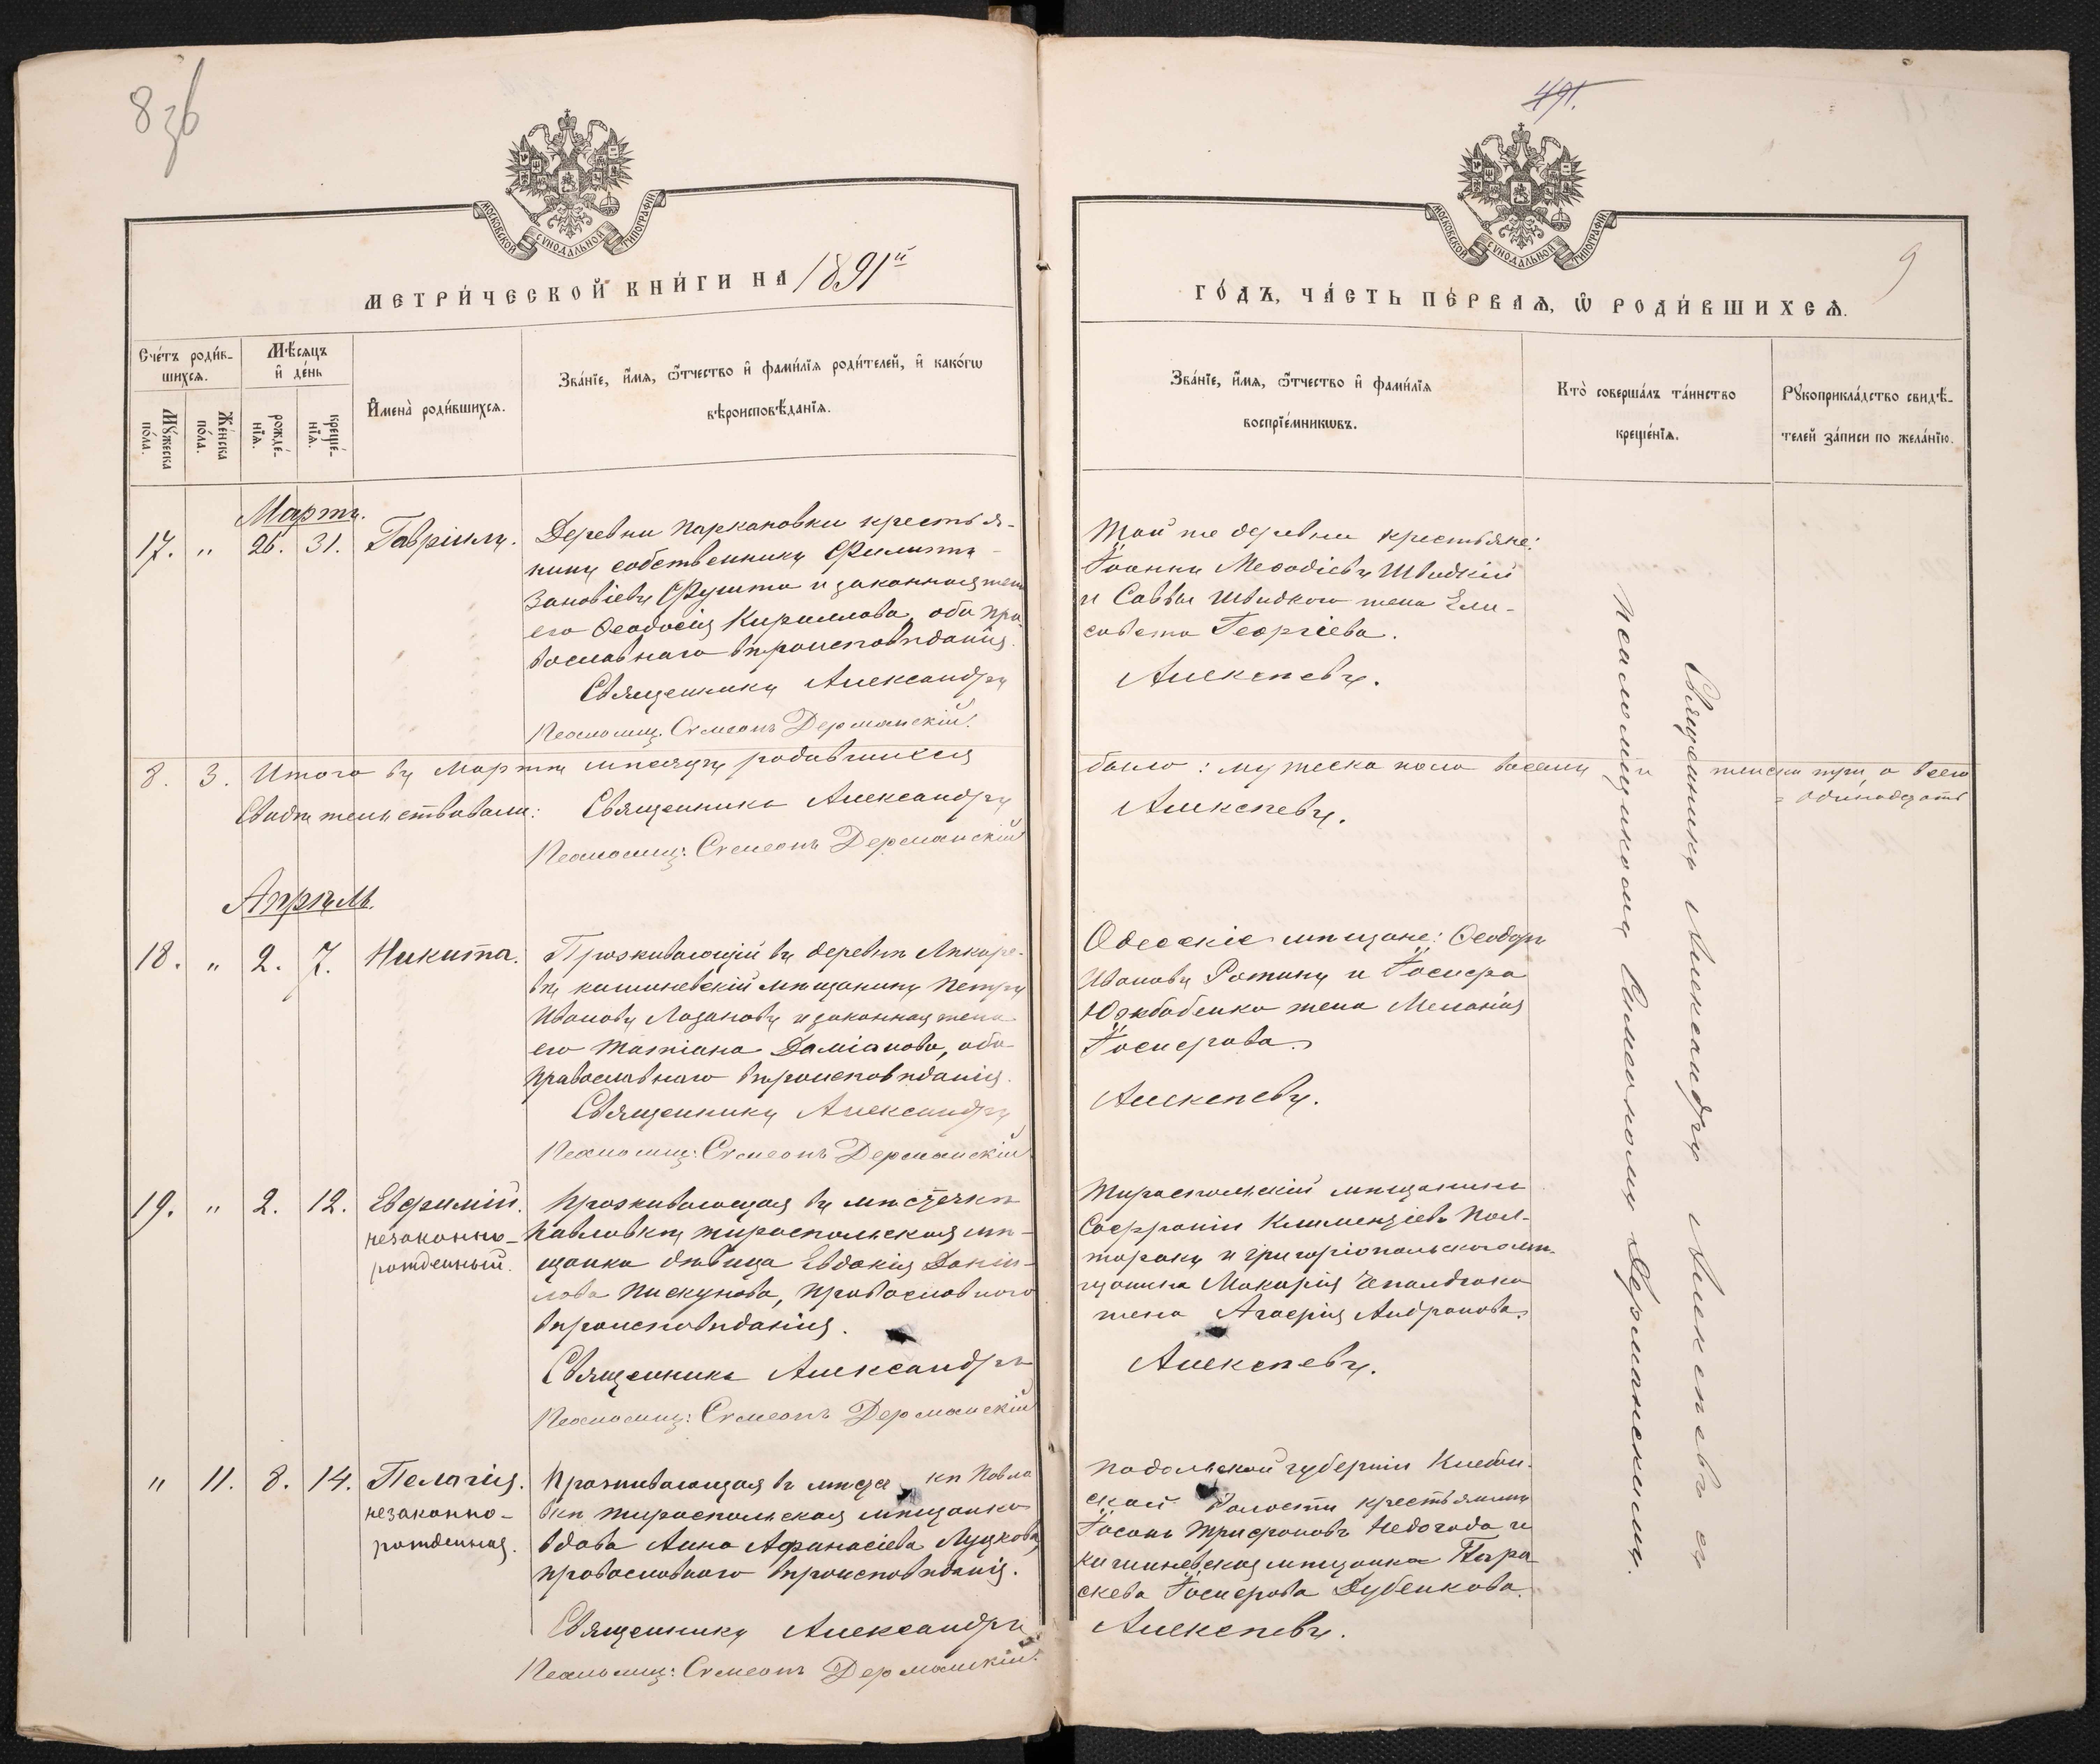 8зб
МОСКОВСКОЙ СѴНОДАЛЬНОЙ ТИПОГРАФІИ
МЕТРИ́ЧЕСКОЙ КНИ́ГИ НА 1891й
Сче́тъ роди́в-
шихсѧ.
Мѣ́сѧцъ
и҆ де́нь
Мꙋ́жеска
по́ла.
Же́нска
по́ла.
рожде́-
нїѧ.
креще́-
нїѧ.
И҆мена̀ роди́вшихсѧ.
Зва́нїе, и҆́мѧ, ѻ҆́тчество и҆ фами́лїѧ роди́телей, и҆ како́гѡ
вѣроисповѣ́данїѧ.
Мартъ.
17. " 26. 31. Гавріилъ.
Деревни Паркановки крестья-
нинъ собственникъ Филиппъ
Зановіевъ Фушта и законная жена
его Ѳеодосія Кириллова, оба пра-
вославнаго вѣроисповѣданія.
Священникъ Александръ
Псаломщ. Симеонъ Дерманскій.
8. 3. Итого въ Мартѣ мѣсяцѣ родившихся
Свидѣтельствовали: Священникъ Александръ
Псаломщ: Симеонъ Дерманскій
Апрѣль.
18. " 2. 7. Никита.
Проживающій въ деревнѣ
кишиневскій мѣщанинъ Петръ
Ивановъ Лозановъ и законная жена
его Татіана Даміанова, оба
православнаго вѣроисповѣданія.
Священникъ Александръ
Псаломщ: Симеонъ Дерманскій
19. " 2. 12. Евфимій.
незаконно-
рожденный.
Проживающая въ мѣстечкѣ
Павловкѣ тираспольская мѣ-
щанка дѣвица Евдокія Даніи-
лова Пискунова, православнаго
вѣроисповѣданія.
Священникъ Александръ
Псаломщ: Симеонъ Дерманскій
" 11. 8. 14. Пелагія.
незаконно-
рожденная.
Проживающая въ мѣсте кѣ Павло
вкѣ тираспольская мѣщанка
вдова Анна Афанасіева Луцкова
православнаго вѣроисповѣданія.
Священникъ Александръ
Псаломщ: Симеонъ Дерманскій.
491.
9
МОСКОВСКОЙ СѴНОДАЛЬНОЙ ТИПОГРАФІИ
ГО́ДЪ, ЧА́СТЬ ПЕ́РВАѦ, Ѡ҆ РОДИ́ВШИХСѦ.
Зва́нїе, и҆́мѧ, ѻ҆́тчество и҆ фами́лїѧ
воспрїе́мникѡвъ.
Кто̀ соверша́лъ та́инство
креще́нїѧ.
Рꙋкоприкла́дство свидѣ́-
телей за́писи по жела́нїю.
Той же деревни крестьяне:
Іоаннъ Меѳодіевъ Швидкій
и Саввы Швидкаго жена Ели-
савета Георгіева.
Алексѣевъ.
было: мужеска пола восемь и женска три, а всего
= одинадцать
Алексѣевъ.
Одесскіе мѣщане: Ѳеодоръ
Ивановъ Ротинъ и Іосифа
жена Меланія
Іосифова.
Алексѣевъ.
Тираспольскій мѣщанинъ
Софроній Климентіевъ Пол-
торакъ и григоріопольскаго мѣ-
щанина Макарія
жена Агафія Андронова.
Алексѣевъ.
Подольской губерніи
ской волости крестьянинъ
Іосифъ Трифоновъ Недогода и
кишиневская мѣщанка Пара-
скева Іосифова Дубенкова.
Алексѣевъ.
Священникъ Александръ Алексѣевъ съ
псаломщикомъ Симеономъ Дерманскимъ.